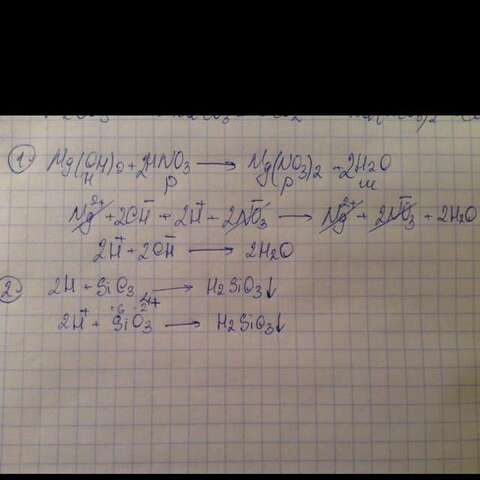 1. Mg(OH)2 + 2HNO3 → Mg(NO3)2 + 2H2O
н р р ш
Mg2+ + 2OH- + 2H+ + 2NO3- → Mg2+ + 2NO3- + 2H2O
2H+ + 2OH- → 2H2O
2. 2H + SiO3 → H2SiO3↓
2H+ + SiO3 → H2SiO3↓